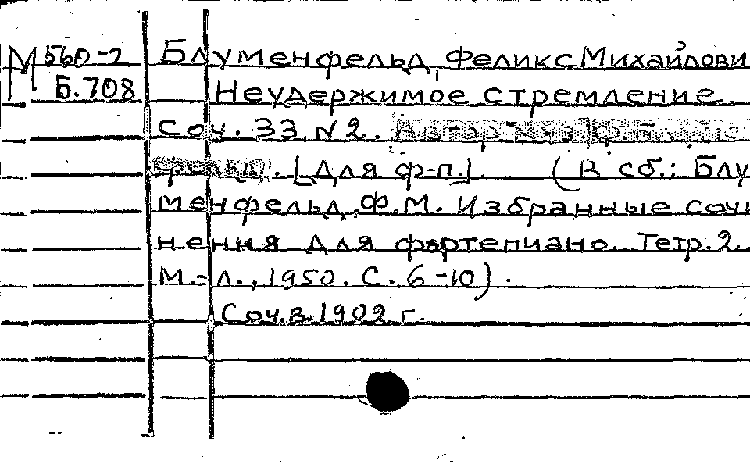 М 560-2 Блуменфельд, Феликс Михайлови
Б.708 Неудержимое стремление
Соч. 33 N2.
[Для ф-п.]. (В сб.: Блу
менфельд, Ф.М. Избранные сочи
нения для фортепиано. Тетр. 2.
М.-Л., 1950. С. 6-10).
Соч. в 1902 г.